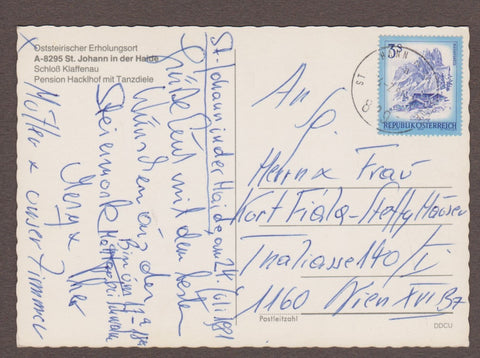 Oststeirischer Erholungsort
A-8295 St. Johann in der Haide
Schloß Klaffenau
Pension Hacklhof mit Tanzdiele
St. Johann in der Haide, am 24.
1981
Grüße Euch mit den besten
Wünschen aus der
Steiermark
x unser Zimmer
3S
REPUBLIK ÖSTERREICH
ST
An
Herrn x Frau
Kurt Fiala-Steffy Häuser
Thaliastasse 140/I
1160 Wien XVI Bz
Postleitzahl
DDCU